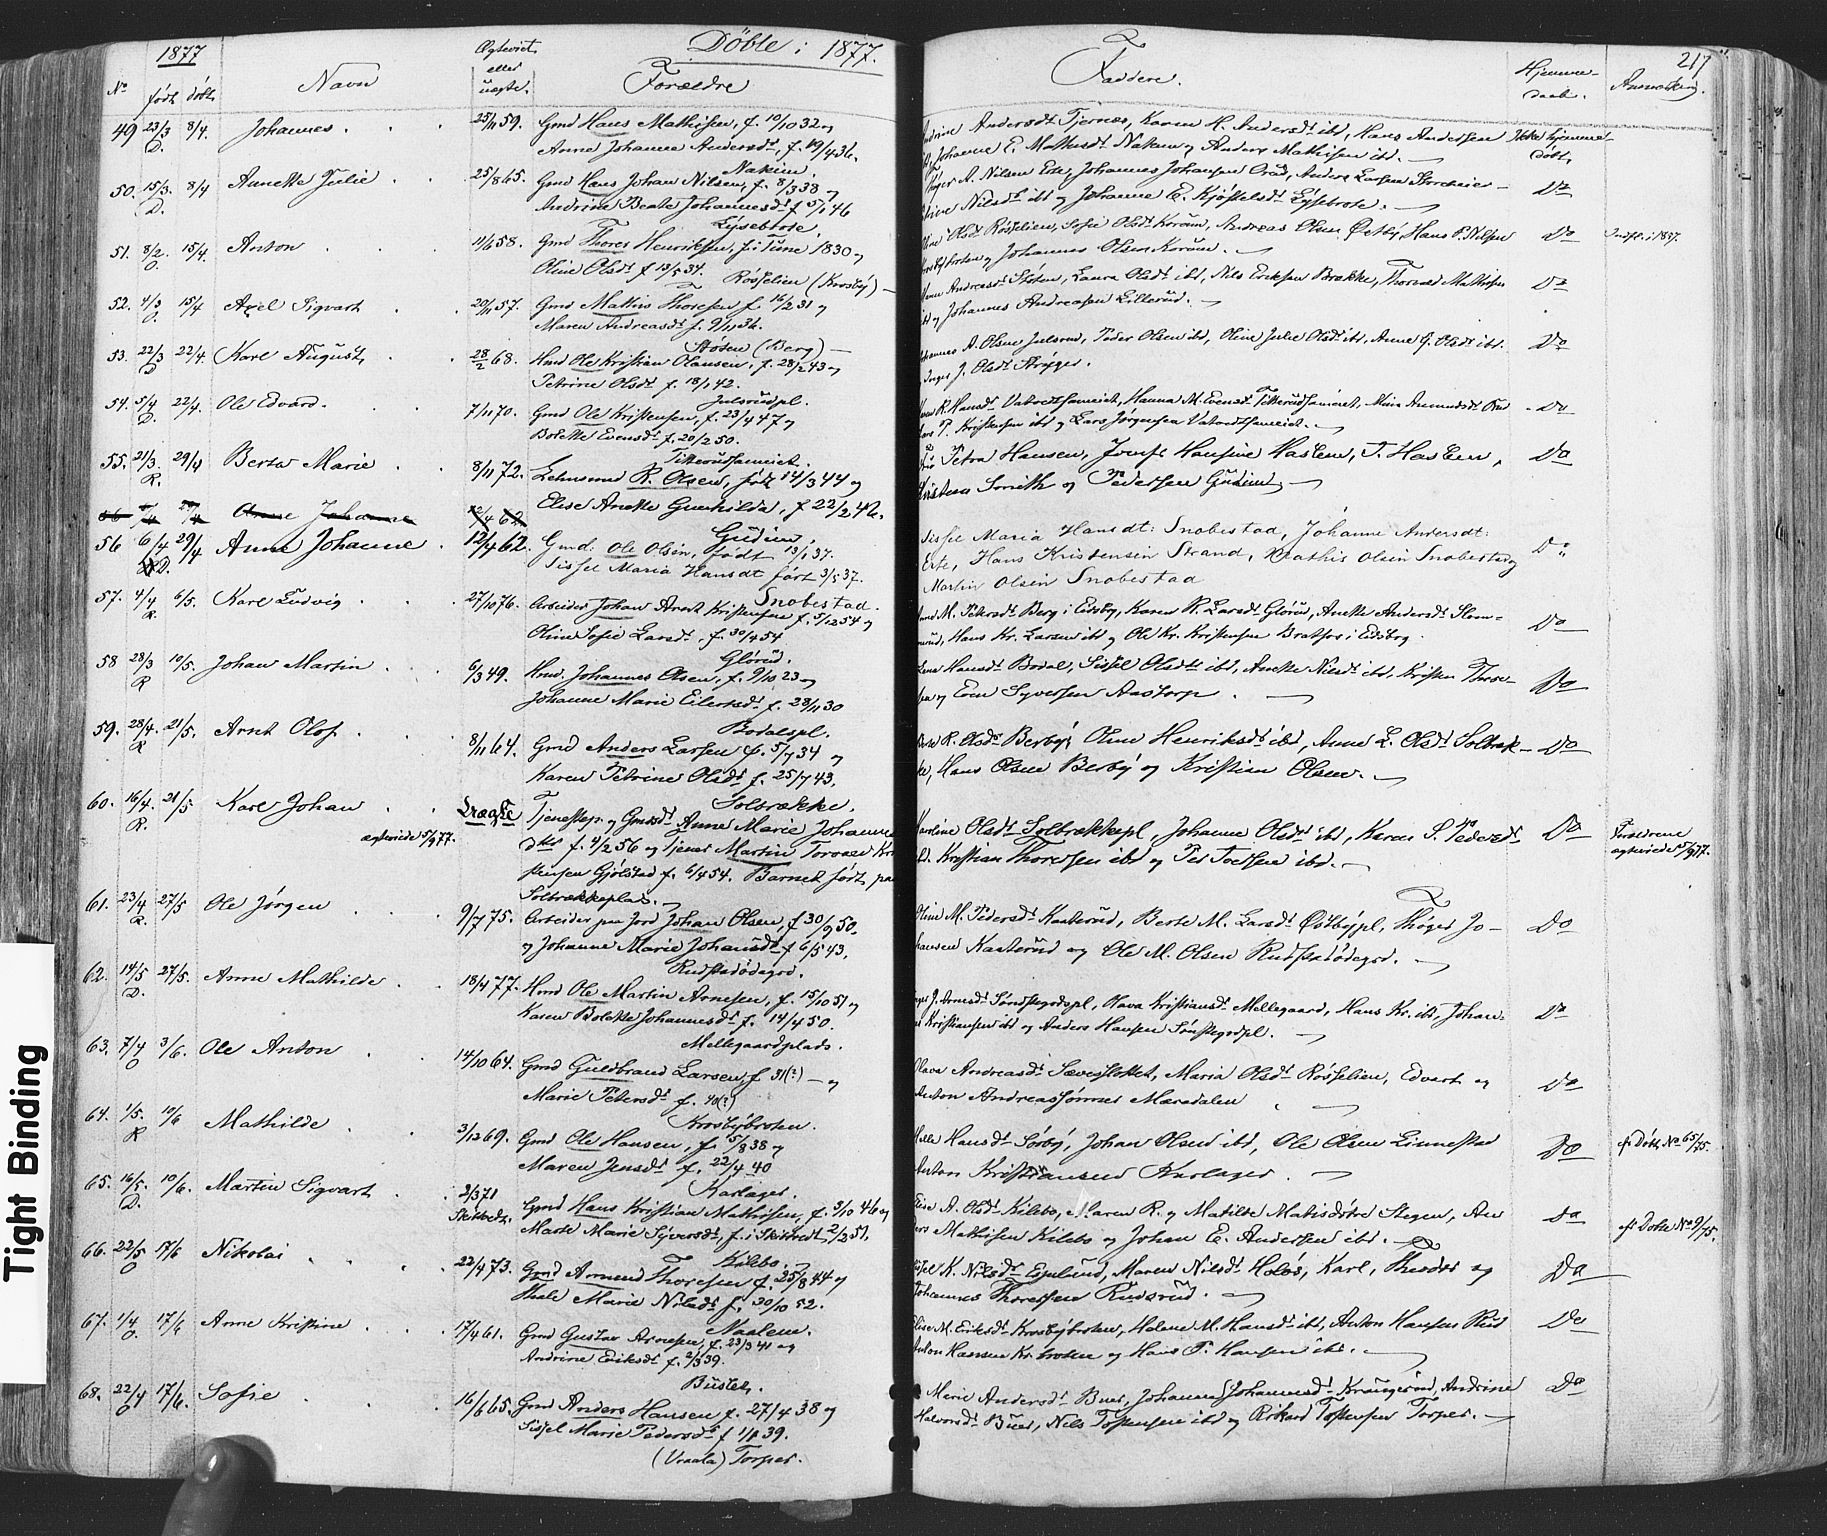 1877
Døbte i 1877.
217
No
født
døbt
Navn
Ægteviet eller uægte.
Forældre
Faddere.
Hjemme-
daab.
Anmærkning.
49 23/3 D. 8/4. Johannes 25/11 59. Gmd Hans Mathisen, f. 10/10 32 og
Anne Johanne Andersdt, f. 19/4 36.
Nakim.
Andersdt Tjernæs, Karen M. Andersdt ibd, Hans Andersen Ikke hjemme-
Johanne E. Mathisdt Nakim og Anders Mathisen ibd. døbt
50. 15/3. D. 8/4 Annette Julie 25/8 65. Gmd Hans Johan Nilsen, f. 8/3 38 og
Andrine Beate Johannesdt f. 5/1 46
Lysebrote.
A. Nilsen Ete, Johannes Johansen Orad, Anders Larsen Do
Nilsdt ibd og Johanne E. Kjøstelsdt Lysebrote.
51. 8/2. O. 15/4. Anton 11/6 58. Gmd Thores Henriksen, f. i Tune 1830 og
Oline Olsdt f. 13/5 34.
Røsselien (Krosby)
Olsdt Røsselien, Sofie Olsdt Korum, Andreas Olsen Østby, Hans P. Nilsen Do Indfl. i 1837.
og Johannes Olsen Korum.
52. 4/3 O. 15/4 Axel Sigvart 20/11 57. Gmd Mathis Thoresen f. 16/2 31 og
Maren Andreasdt f. 9/11 36.
Støten (Berg)
Andreasdt Støten, Laura Olsdt ibd, Nils Eriksen Brække, Thorvald Mathisen Do
og Johannes Andreasen Lillerud.
53. 22/3 D 22/4. Karl August 28/2 68. Hmd Ole Kristian Olausen, f. 28/2 43 og
Petrine Olsdt f. 18/1 42.
Julsrudpl.
Johannes A. Olsen Julsrud, Peder Olsen ibd, Oline Julie Olsdt ibd, Anne G. Olsdt ibd. Do
Inger J. Olsdt
54. 5/4 D. 22/4. Ole Edvard. 7/11 70. Gmd Ole Kristensen, f. 23/4 47 og
Bolette Evensdt f. 20/2 50.
R. Hansdt Hanna M. Evensdt Do
P. Kristensen ibd og Lars Jørgensen
55. 21/3. R. 29/4 Berta Marie 8/11 72. Lehnsmand R. Olsen, født 14/3 44 og
Elise Anette Gunhilda, f. 22/2 46.
Gudim.
Petra Hansen, Josefe Hansine Haslem, T. Haslem, Do
Smith og Pedersen Gudim
Anne Johanne
56 6/4 D. 29/4 Anne Johanne 12/4 62. Gmd: Ole Olsen, født 13/1 37.
Sissel Maria Hansdt født 3/5 37.
Snobestad.
Sissel Maria Hansdt: Snobestad, Johanne Andersdt: Do
Ete, Hans Kristensen Strand, Mathis Olsen Snobestad og
Martin Olsen Snobestad
57. 4/4 R. 6/5. Karl Ludvig 27/10 76. Arbeider Johan Arnt Kristensen f. 5/12 54 og
Oline Sofie Larsdt, f. 30/4 54
Glørud.
M. Pettersdt Berg i Eidsberg, Karen R. Larsdt Glørud, Anette Andersdt Do
Hans Kr. Larsen ibd og Ole Kr. Kristensen Bratfos i Eidsberg.
58 28/3 R 10/5. Johan Martin 6/3 49. Hmd. Johannes Olsen, f. 9/10 23 og
Johanne Marie Eilertsdt f. 28/11 30
Bodalspl.
Hansdt Bodal, Sissel Olsdt ibd, Anette Nilsdt ibd, Kristen Do
og Even Syversen Aastorp.
59. 28/4. R 21/5. Arnt Olof. 8/11 64. Gmd Anders Larsen f. 5/7 34 og
Karen Petrine Olsdt f. 25/7 43.
Solbrække.
R. Olsdt Berby, Oline Henriksdt ibd, Anne L. Olsdt Solbræk- Do
ke, Hans Olsen Berby og Kristian Olsen.
60. 16/4. R. 21/5 Karl Johan Uægte Tjenestep. og Gmdsdt Anne Marie Johannes
ægteviede 5/9 77. dtr f. 4/2 56 og Tjener Martin Torvald Kri
stensen Gjølstad f. 6/4 54. Barnet født paa
Solbrækkeplads.
Karoline Olsdt Solbrækkepl, Johanne Olsdt ibd, Karen S. Pedersdt Do Forældrene
Kristian Thoresen ibd og ibd. ægteviede 5/9 77.
61. 23/4 R. 27/5 Ole Jørgen 9/7 75. Arbeider paa Jord Johan Olsen, f. 30/9 50.
og Johanne Marie Johansdt f. 6/5 43.
Rudstadødegrd.
Oline M. Pedersdt Kaaterud, Berte M. Larsdt Østbypl, Thøger Jo- Do
hansen Kaaterud og Ole M. Olsen Rudstadødegrd.
62. 14/5 D. 27/5. Anne Mathilde 18/4 77. Hmd Ole Martin Arnesen, f. 15/10 51 og
Karen Bolette Johannesdt f. 14/4 50.
Mellegaardplads.
J. Arnesdt Sønstegrdspl, Olava Kristiansdt Mellegaard, Hans Kr. ibd, Johan- Do
Kristiansen ibd og Anders Hansen Sønstegrdpl.
63. 7/4 O 3/6. Ole Anton 14/10 64. Gmd Guldbrand Larsen, f. 31(?) og
Marie Petersdt f. 40(?)
Krosbybroten.
Olava Andreasdt Maria Olsdt Røsselien, Edvart og Do
Anton Andreassønner Maradalen
64. 1/5. R 10/6 Mathilde 3/12 69. Gmd Ole Hansen, f. 15/8 38 og
Maren Jensdt f. 22/4 40
Karlager.
Hansdt Sørby, Johan Olsen ibd, Ole Olsen Linnestad Do cfr Døbte No 65/75.
Anton Kristiansen Karlager.
65. 16/5. D. 10/6. Martin Sigvart 2/3 71 Skibtvedt. Gmd Hans Kristian Mathisen, f. 3/10 46 og
Marte Marie Syversdt, f. i Skibtvedt, 2/2 51.
Kilebo.
A. Olsdt Kilebo, Maren R. og Matilde Matisdøtre Stegen, An Do cfr Døbte No 9/75.
ders Mathisen Kilebo og Johan E. Andersen ibd.
66. 22/5 O 17/6 Nikolai 22/4 73. Gmd Amund Thoresen f. 25/8 44 og
Thale Marie Nilsdt f. 30/10 52.
Naalem.
K. Nilsdt Egelund, Maren Nilsdt Karl, Theodor og Do
Johannes Thoresen Rudsrud.
67. 1/4 O. 17/6 Anne Kristine 17/4 61. Gmd Gustav Arnesen, f. 23/3 41 og
Andrine Eriksdt f. 2/3 39.
Busted.
Elise M. Eriksdt Krosbybroten, Helene M. Hansdt ibd, Anton Hansen Rud Do
Anton Hansen Kr. broten og Hans P. Hansen ibd.
68. 22/4 O 17/6. Sofie 16/6 65. Gmd Anders Hansen f. 27/4 38 og
Sissel Marie Pedersdt f. 1/8 39.
(Vraala) Torper.
Marie Andersdt Buer, Johannes Johannesdt Krangerød, Andrine Do
Halvorsdt Buer, Nils Tostensen ibd og Rikard Tostensen Torper.
Tight Binding